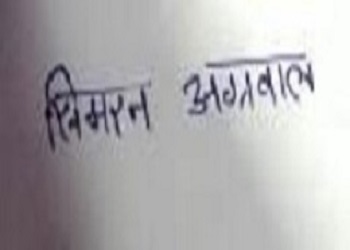 सिमरन अग्रवाल